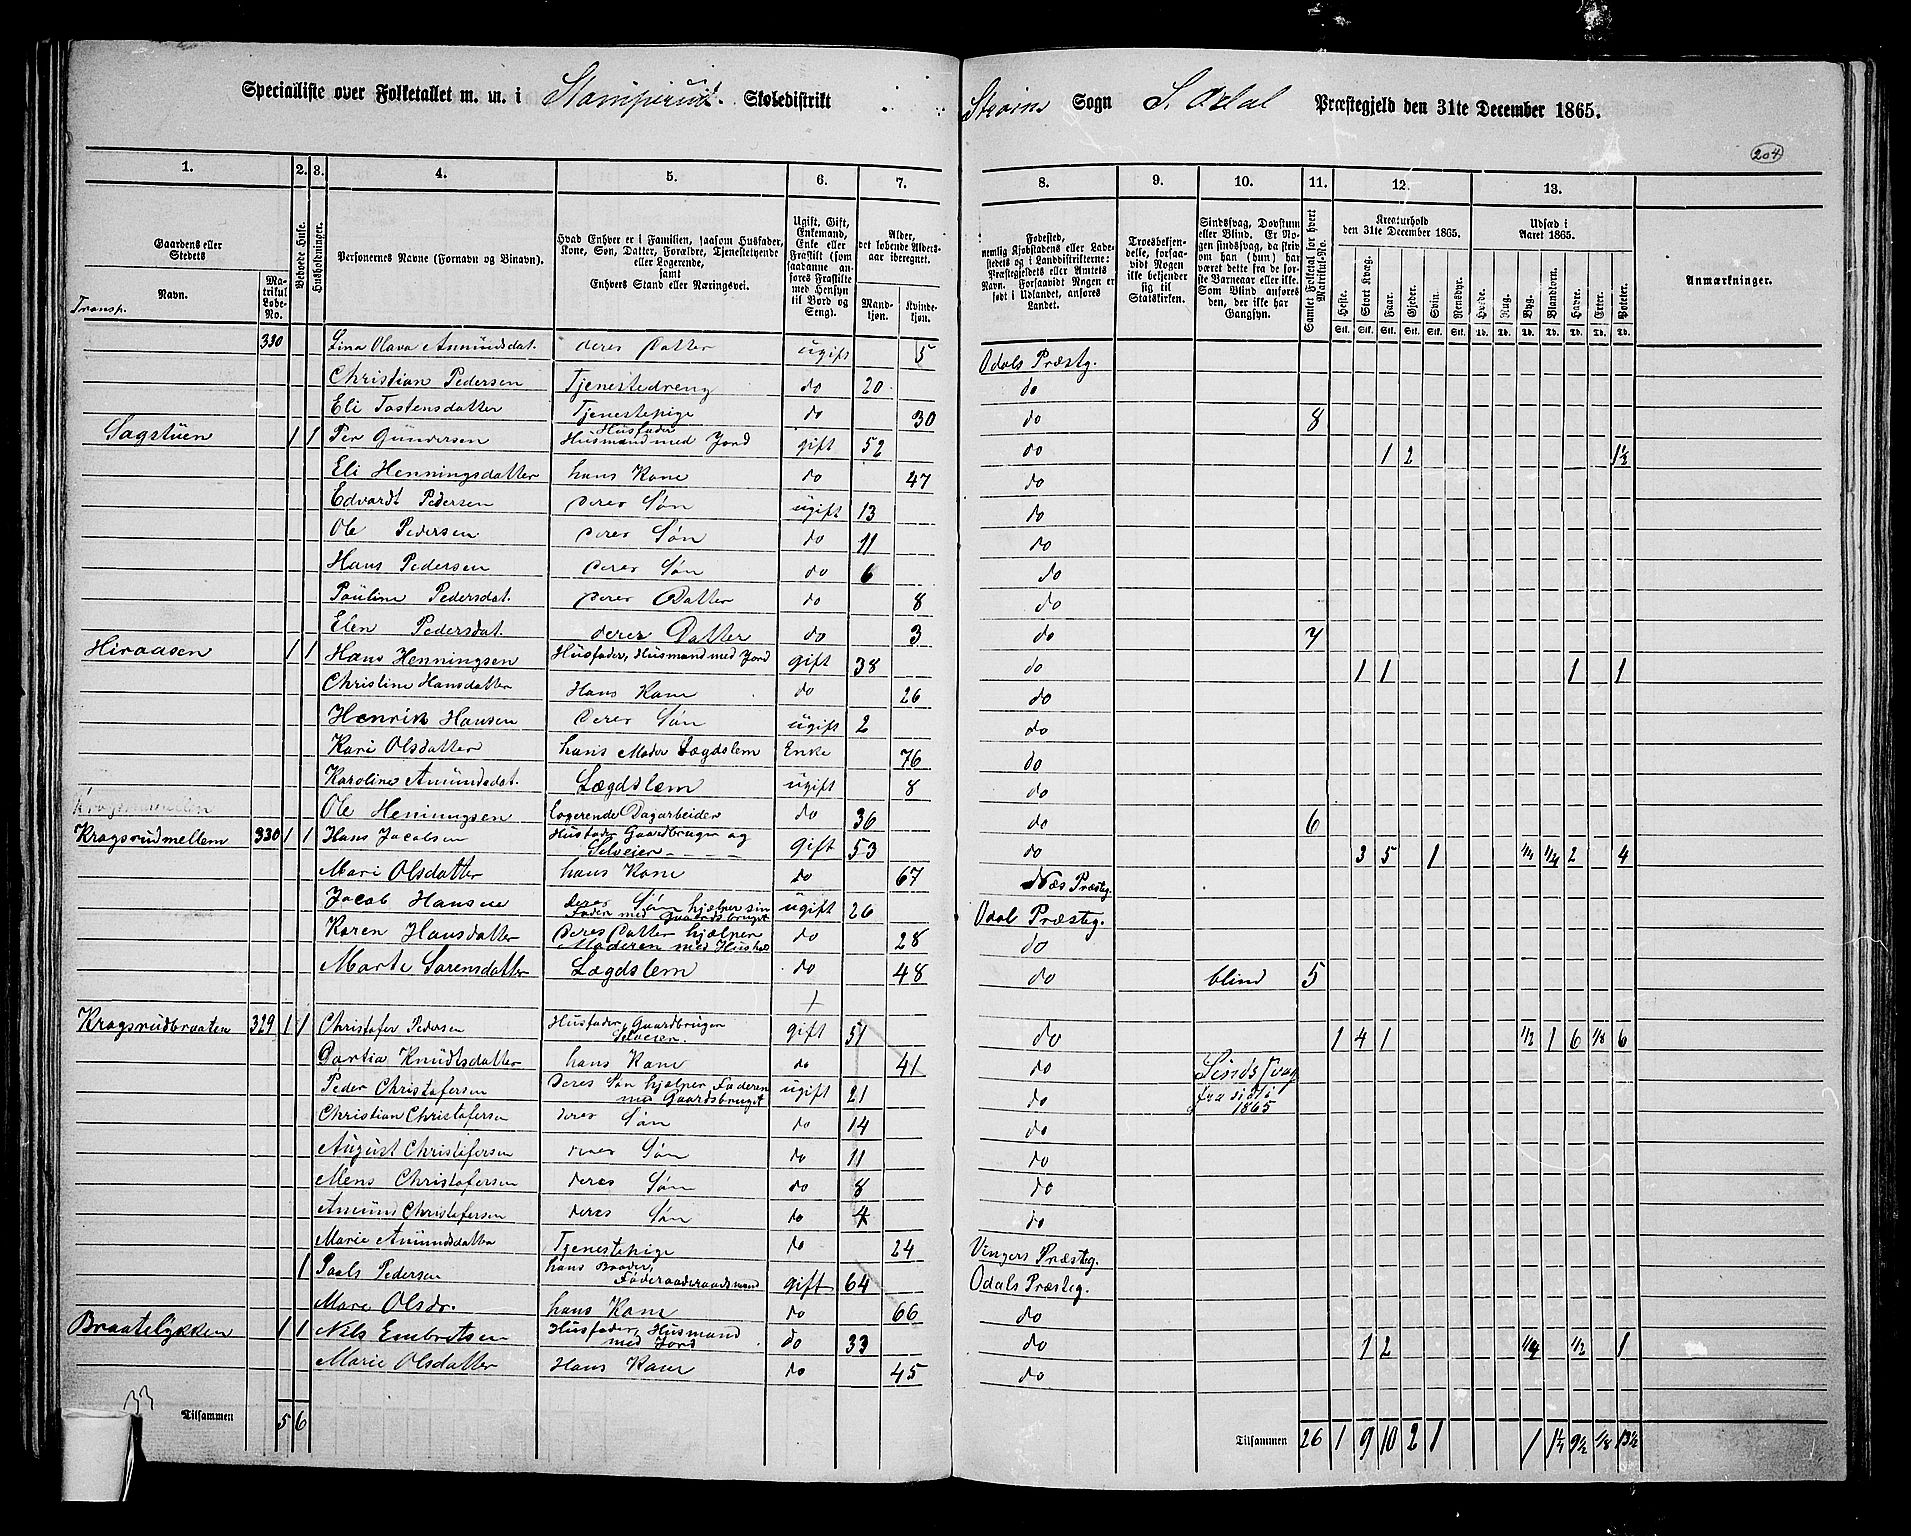 Specialliste over Folketallet m. m. i Stomperud Skoledistrikt Strøms Sogn S. Odal Præstegjeld den 31te December 1865.
204
1. 2. 3. 4. 5. 6. 7. 8. 9. 10. 11. 12. 13.
Gaardens eller Stedets
Navn.
Matrikul Løbe-No.
Beboede Huse.
Husholdninger.
Personernes Navne (Fornavn og Binavn).
Hvad Enhver er i Familien, saasom Husfader, Kone, Søn, Datter, Forældre, Tjenestetyende eller Logerende, samt Enhvers Stand eller Næringsvei.
Ugift, Gift, Enkemand, Enke eller Fraskilt (som saadanne anføres Fraskilte med Hensyn til Bord og Seng).
Alder, det løbende Alders-aar iberegnet.
Mandkjøn.
Kvindekjøn.
Fødested, nemlig Kjøbstadens eller Ladestedets og i Landdistrikterne: Præstegjeldets eller Amtets Navn. Forsaavidt Nogen er født i Udlandet, anføres Landet.
Troesbekjendelse, forsaavidt Nogen ikke bekjender sig til Statskirken.
Sindssvag, Døvstum eller Blind. Er Nogen sindssvag, da skriv om han (hun) har været dette fra de første Barneaar eller ikke. Som Blind anføres den, der ikke har Gangsyn.
Samlet Folketal for hvert Matrikul-No.
Kreaturhold den 31te December 1865.
Heste. Stort Kvæg. Faar. Gjeder. Svin. Rensdyr.
Udsæd i Aaret 1865.
Hvede. Rug. Byg. Blandkorn. Havre. Erter. Poteter.
Anmærkninger.
Transp.
330 Lina Olava Amundsdat. deres Datter ugift 5 Odals Præstg.
Christian Pedersen Tjenestedreng do 20 do
Eli Tostensdatter Tjenestepige do 30 do 8
Sagstuen 1 1 Per Gundersen Husfader Husmand med Jord gift 52 do 1 2 1½
Eli Henningsdatter hans Kone do 47 do
Edvardt Pedersen deres Søn ugift 13 do
Ole Pedersen deres Søn do 11 do
Hans Pedersen deres Søn do 6 do
Pauline Pedersdat. deres Datter do 8 do
Elen Pedersdat. deres Datter do 3 do 7
Hiraasen 1 1 Hans Henningsen Husfader, Husmand med Jord gift 38 do 1 1 1 1
Christine Hansdatter Hans Kone do 26 do
Henrik Hansen deres Søn ugift 2 do
Kari Olsdatter hans Moder Lægdslem Enke 76 do
Karoline Amundsdat. Lægdslem ugift 8 do
Ole Henningsen Logerende Dagarbeider do 36 do 6
Kragsrudmellem 330 1 1 Hans Jacobsen Husfader Gaardbruger og Selveier gift 53 do 3 5 1 ½ ¼ 2 4
Mari Olsdatter hans Kone do 67 Næs Præsteg.
Jacob Hansen deres Søn hjælper sin Fader med Gaardsbruget ugift 26 Odal Præsteg.
Karen Hansdatter deres Datter hjælper Moderen med Hushol do 28 do
Marte Sørensdatter Lægdslem do 48 do blind 5
Kragsrudbraaten 329 1 1 Christofer Pedersen Husfader, Gaardbruger Selveier. gift 51 do 1 4 1 ½ 1 6 ⅛ 6
Dortia Knudtsdatter hans Kone do 41 do Sindssvag
Peder Christofersen deres Søn hjælper Faderen med Gaardsbruget ugift 21 do fra sidst i 1865
Christian Christofersen deres Søn do 14 do
August Christofersen deres Søn do 11 do
Mens Christofersen deres Søn do 8 do
Amund Christofersen deres Søn do 4 do
Marie Amundsdatter Tjenestepige do 24 Vingers Præsteg.
1 Paals Pedersen hans Broder, Føderaadsmand gift 64 Odals Præsteg.
Mari Olsdr. hans Kone do 66 do
Braateløkken 1 1 Nils Embretsen Husfader, Husmand med Jord do 33 do 1 2 ¼ ½ 1
Marie Olsdatter Hans Kone do 45 do
33
Tilsammen 5 6
Tilsammen 26 1 9 10 2 1 1 1½ 9½ ⅛ 13½